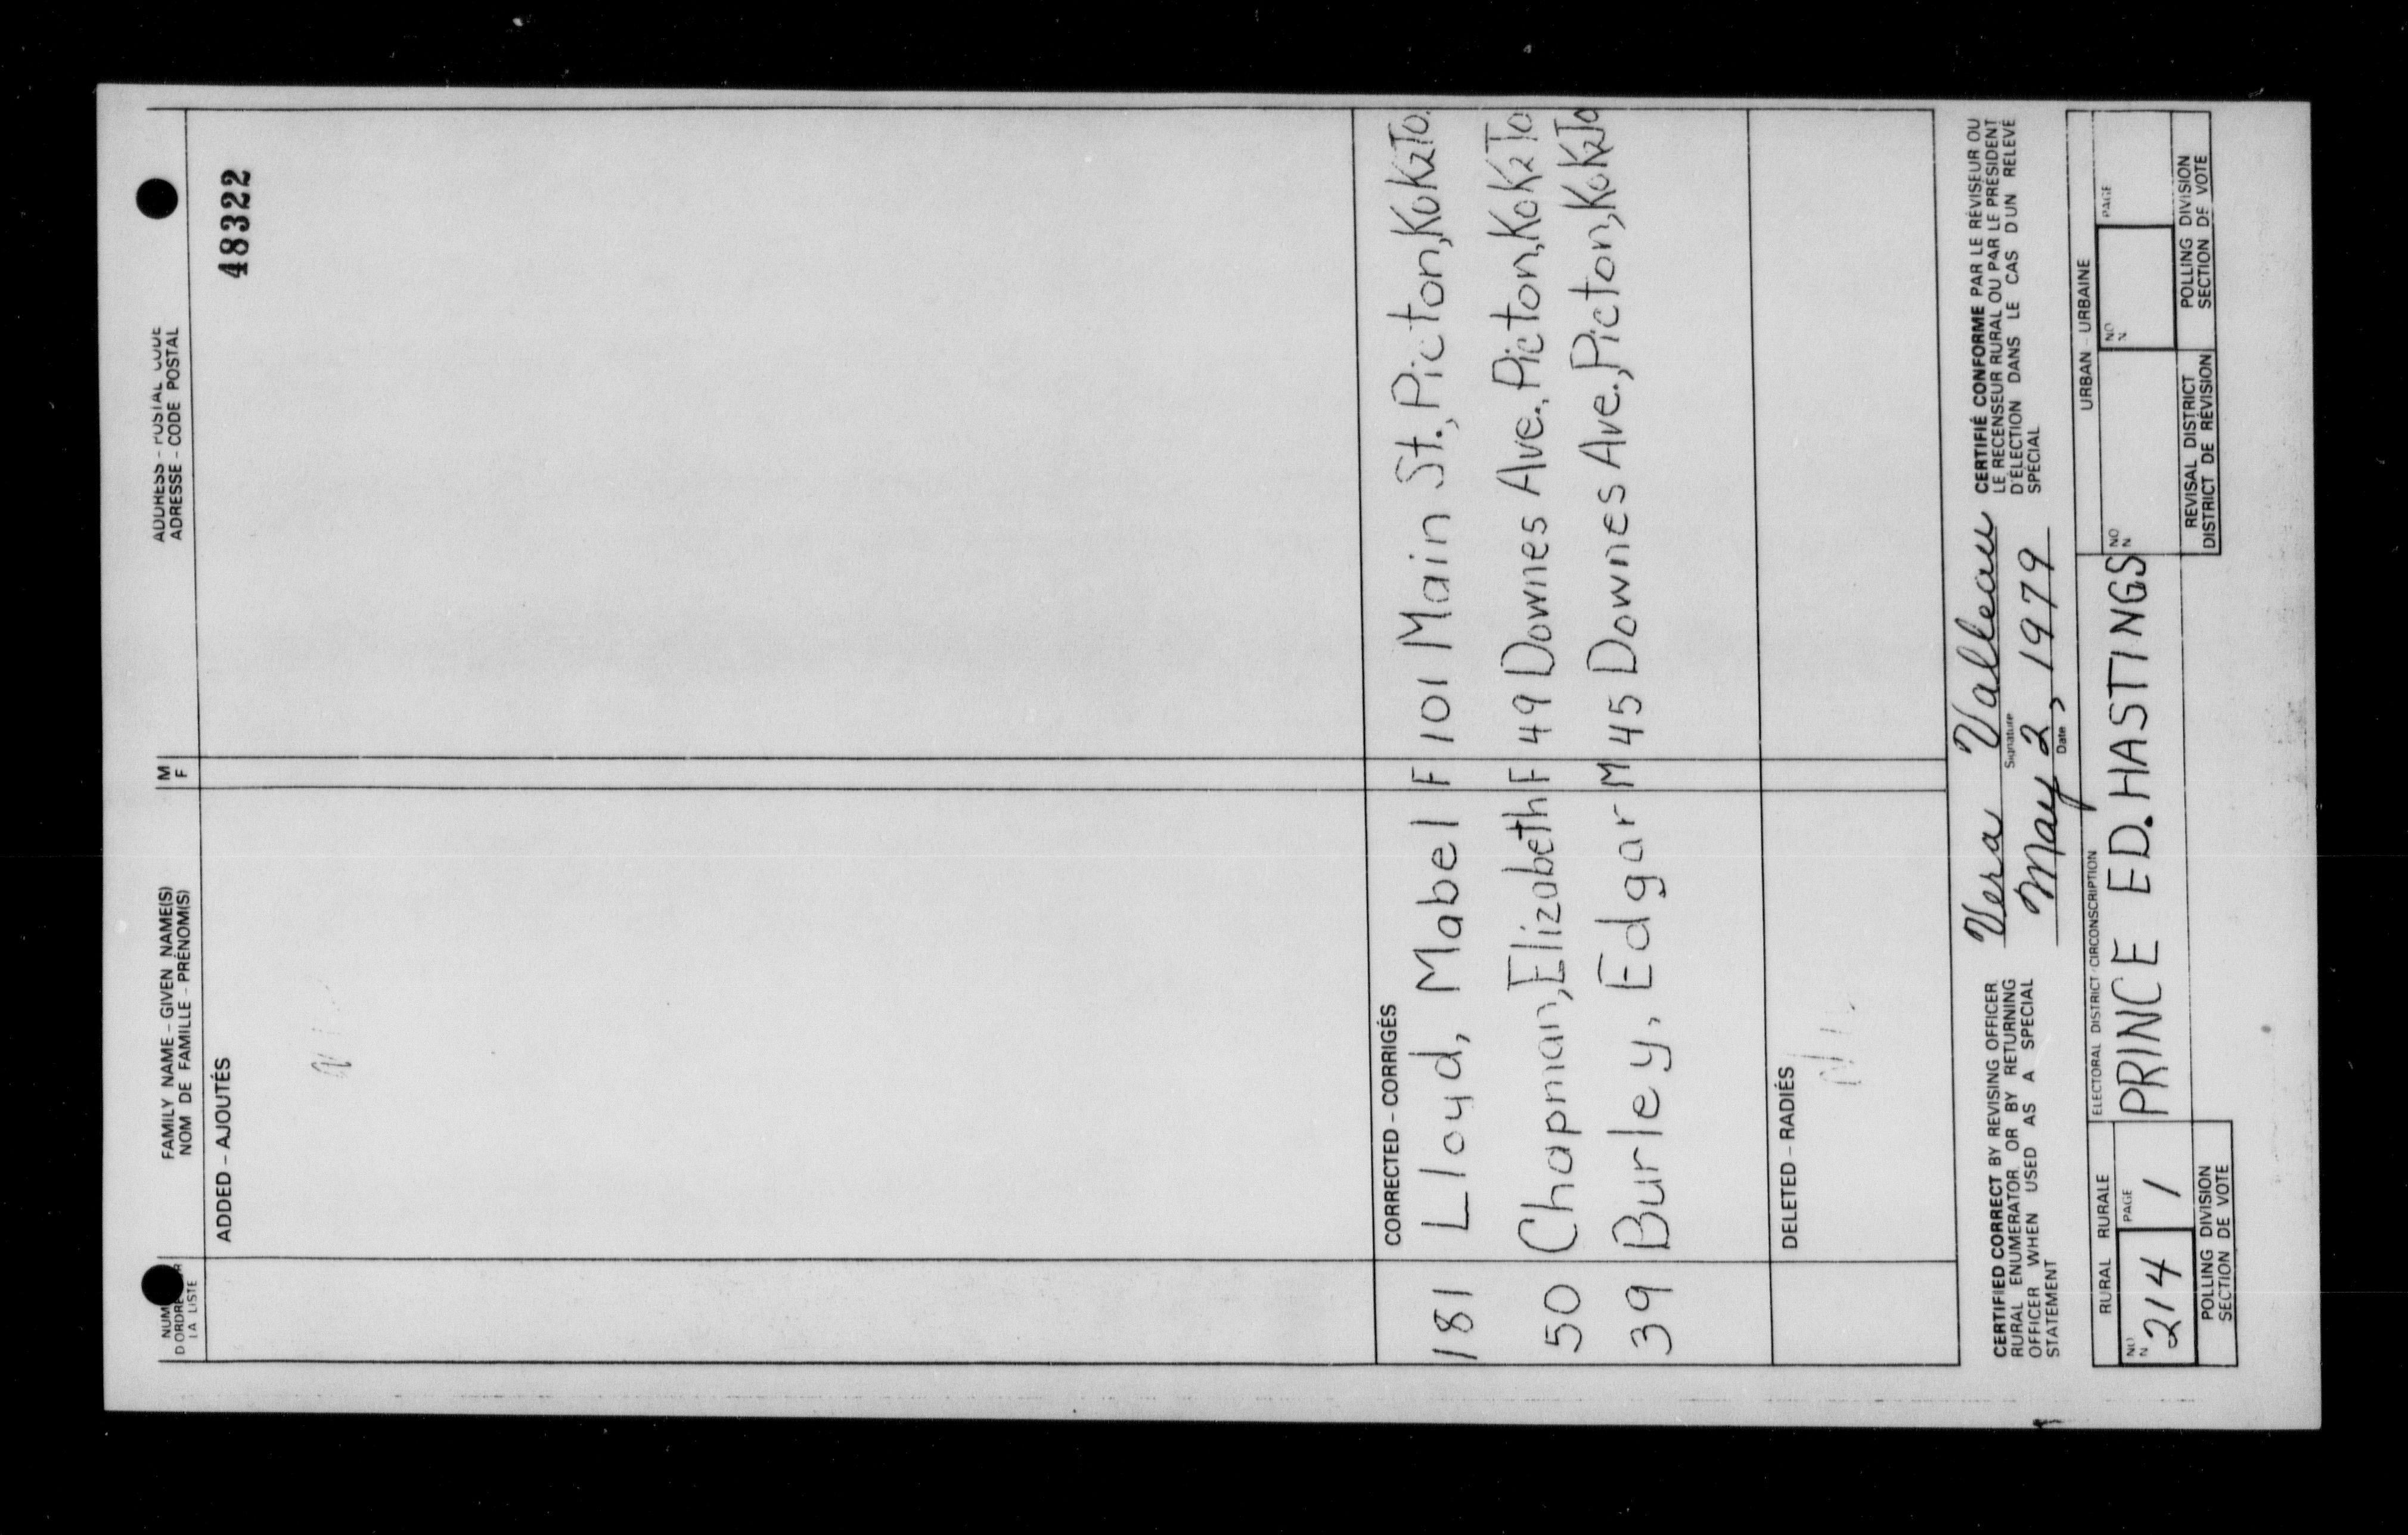 NUM
D ORDRE R
LA LISTE
FAMILY NAME - GIVEN NAME(S)
NOM DE FAMILLE - PRÉNOM(S)
M
F
ADDRESS - POSTAL CODE
ADRESSE - CODE POSTAL
ADDED - AJOUTÉS
48322
CORRECTED - CORRIGÉS
181 Lloyd, Mabel F 101 Main St., Picton, K0K2T0.
50 Chapman, Elizabeth F 49 Downes Ave., Picton, K0K2T0
39 Burley, Edgar M 45 Downes Ave., Picton, K0K2T0
DELETED - RADIÉS
CERTIFIED CORRECT BY REVISING OFFICER
RURAL ENUMERATOR OR BY RETURNING
OFFICER WHEN USED AS A SPECIAL
STATEMENT
Vera Valleau
Signature
May 2, 1979
Date
CERTIFIÉ CONFORME PAR LE RÉVISEUR OU
LE RECENSEUR RURAL OU PAR LE PRÉSIDENT
D'ÉLECTION DANS LE CAS D'UN RELEVÉ
SPÉCIAL
RURAL RURALE
NO
N
214
PAGE
1
POLLING DIVISION
SECTION DE VOTE
ELECTORAL DISTRICT / CIRCONSCRIPTION
PRINCE ED. HASTINGS
URBAN - URBAINE
NO
N
REVISAL DISTRICT
DISTRICT DE RÉVISION
NO
N
PAGE
POLLING DIVISION
SECTION DE VOTE